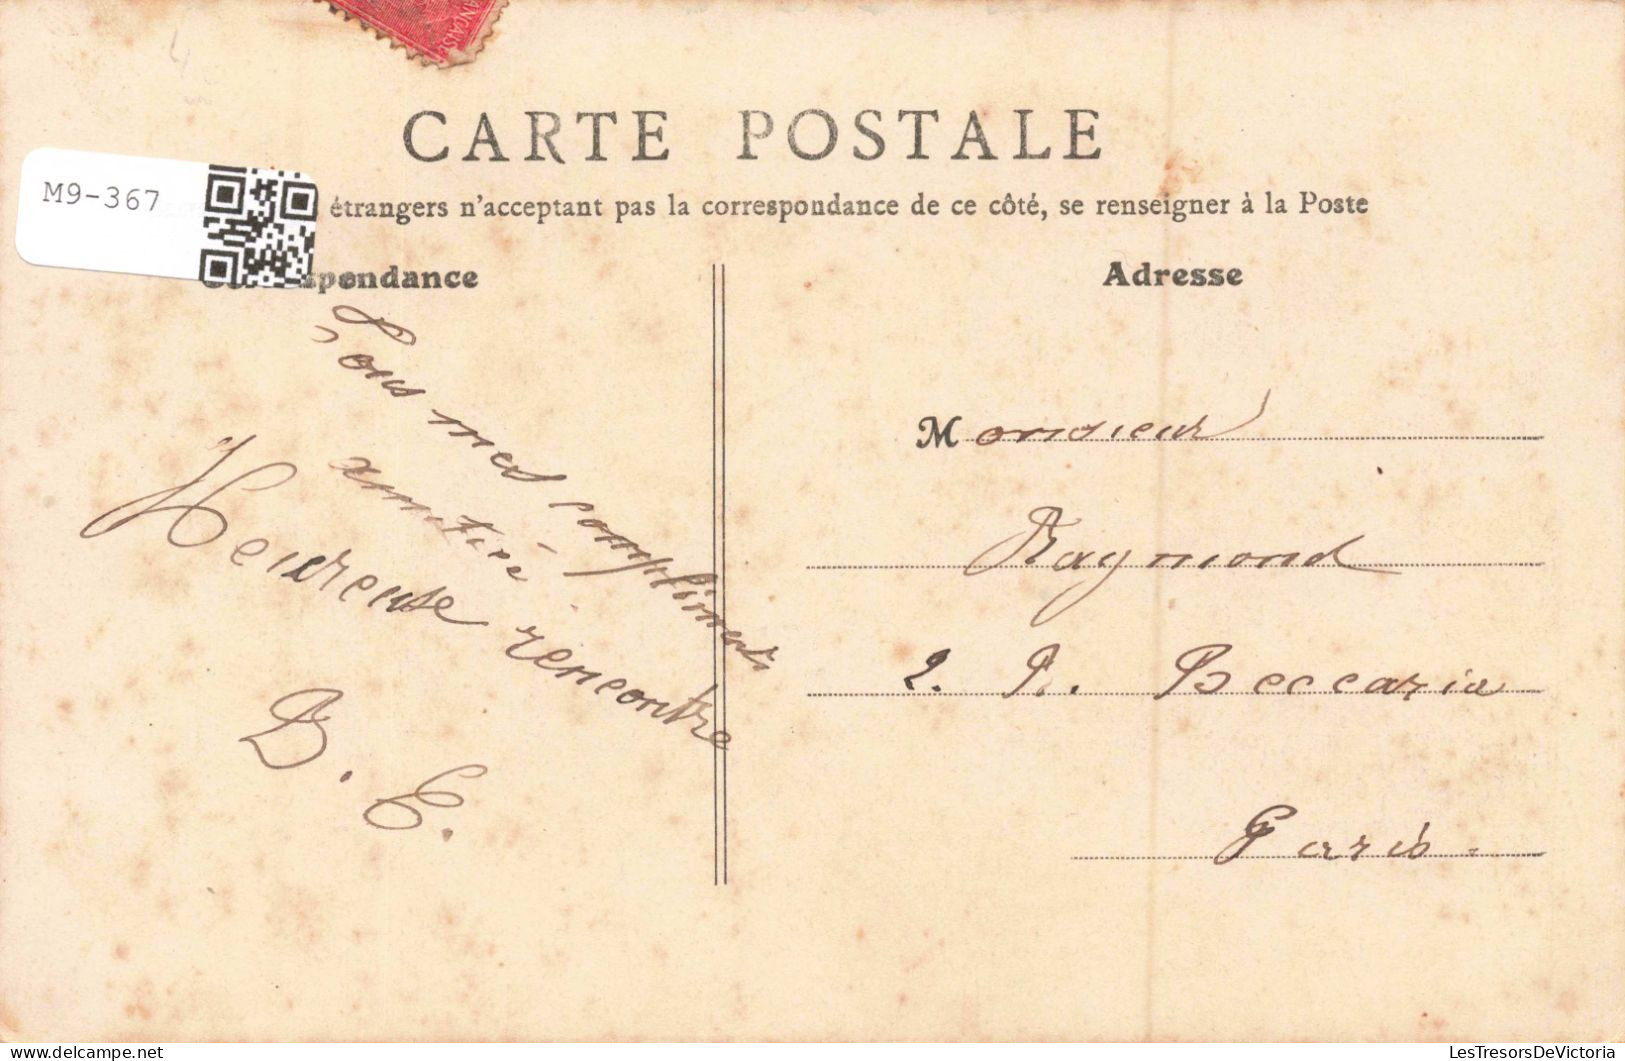 ANÇAISE
CARTE POSTALE
M9-367
étrangers n'acceptant pas la correspondance de ce côté, se renseigner à la Poste
Correspondance
Adresse
Tous mes compliments
amitié
Heureuse rencontre
B. E.
Monsieur
Raymond
2. R. Beccaria
Paris.
LesTresorsDeVictoria